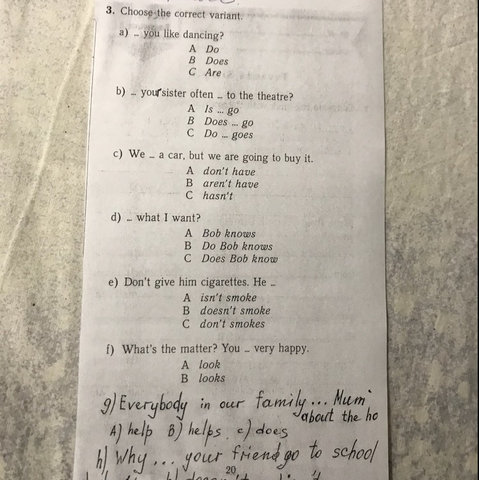 3. Choose the correct variant.
a) .. you like dancing?
A Do
B Does
C Are
b) .. your sister often .. to the theatre?
A Is ... go
B Does ... go
C Do ... goes
c) We .. a car, but we are going to buy it.
A don't have
B aren't have
C hasn't
d) .. what I want?
A Bob knows
B Do Bob knows
C Does Bob know
e) Don't give him cigarettes. He ..
A isn't smoke
B doesn't smoke
C don't smokes
f) What's the matter? You .. very happy.
A look
B looks
g) Everybody in our family ... Mum
about the ho
A) help B) helps c) does
h) Why ... your friend go to school
20